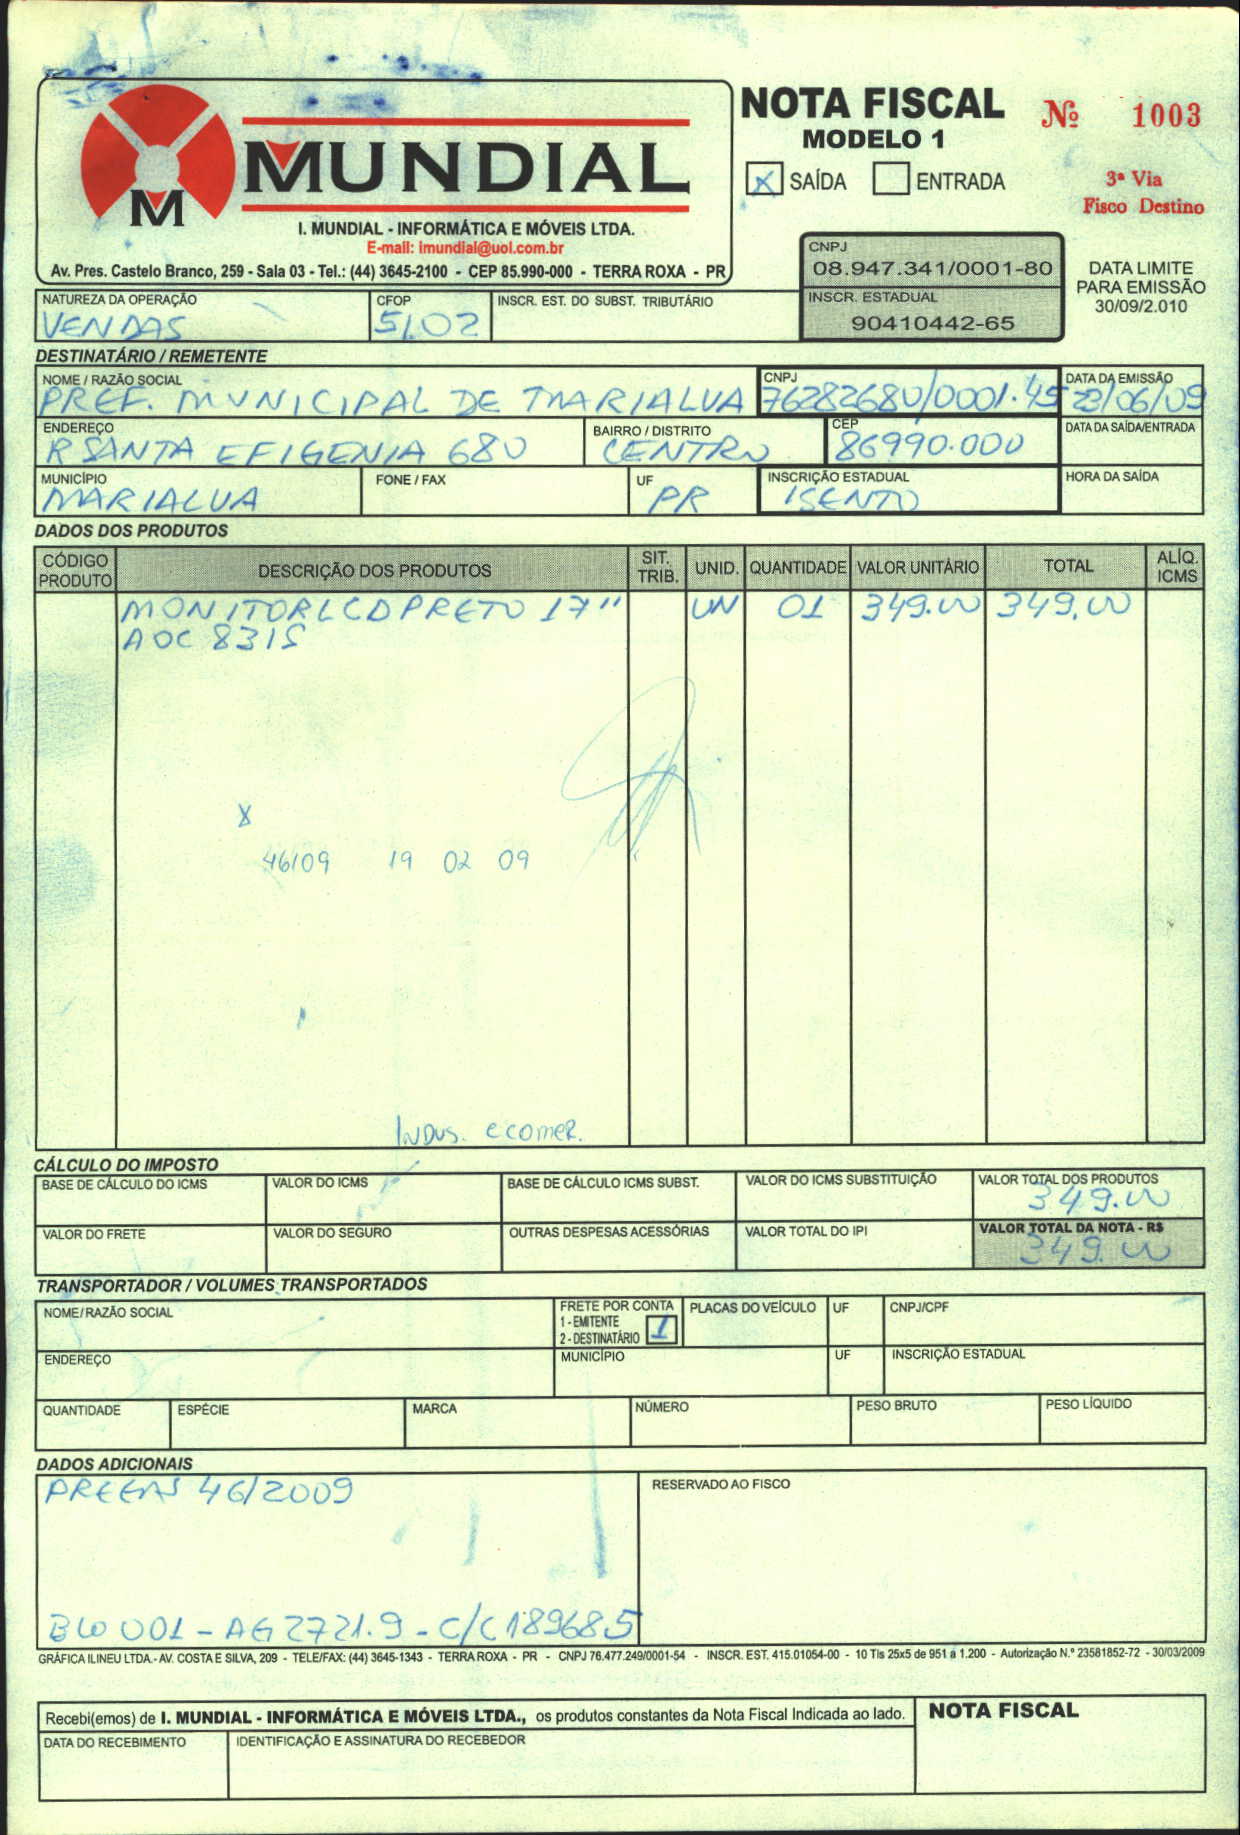 MUNDIAL
M
I. MUNDIAL - INFORMÁTICA E MÓVEIS LTDA.
E-mail: imundial@uol.com.br
Av. Pres. Castelo Branco, 259 - Sala 03 - Tel.: (44) 3645-2100 - CEP 85.990-000 - TERRA ROXA - PR
NOTA FISCAL
MODELO 1
X SAÍDA ENTRADA
Nº 1003
3ª Via
Fisco Destino
CNPJ
08.947.341/0001-80
INSCR. ESTADUAL
90410442-65
DATA LIMITE
PARA EMISSÃO
30/09/2.010
NATUREZA DA OPERAÇÃO CFOP INSCR. EST. DO SUBST. TRIBUTÁRIO
VENDAS 5102
DESTINATÁRIO / REMETENTE
NOME / RAZÃO SOCIAL CNPJ DATA DA EMISSÃO
PREF. MUNICIPAL DE MARIALVA 76282680/0001-45 23/06/09
ENDEREÇO BAIRRO / DISTRITO CEP DATA DA SAÍDA/ENTRADA
R SANTA EFIGENIA 680 CENTRO 86990.000
MUNICÍPIO FONE / FAX UF INSCRIÇÃO ESTADUAL HORA DA SAÍDA
MARIALVA PR ISENTO
DADOS DOS PRODUTOS
CÓDIGO PRODUTO DESCRIÇÃO DOS PRODUTOS SIT. TRIB. UNID. QUANTIDADE VALOR UNITÁRIO TOTAL ALÍQ. ICMS
MONITOR LCD PRETO 17" UN 01 349.00 349,00
AOC 831S
X
46/09 19 02 09
INDUS. e comer.
CÁLCULO DO IMPOSTO
BASE DE CÁLCULO DO ICMS VALOR DO ICMS BASE DE CÁLCULO ICMS SUBST. VALOR DO ICMS SUBSTITUIÇÃO VALOR TOTAL DOS PRODUTOS
349.00
VALOR DO FRETE VALOR DO SEGURO OUTRAS DESPESAS ACESSÓRIAS VALOR TOTAL DO IPI VALOR TOTAL DA NOTA - R$
349.00
TRANSPORTADOR / VOLUMES TRANSPORTADOS
NOME/RAZÃO SOCIAL FRETE POR CONTA PLACAS DO VEÍCULO UF CNPJ/CPF
1 - EMITENTE
2 - DESTINATÁRIO 1
ENDEREÇO MUNICÍPIO UF INSCRIÇÃO ESTADUAL
QUANTIDADE ESPÉCIE MARCA NÚMERO PESO BRUTO PESO LÍQUIDO
DADOS ADICIONAIS
46/2009
RESERVADO AO FISCO
001 - AG 2721.9 - C/C 189685
GRÁFICA ILINEU LTDA.- AV. COSTA E SILVA, 209 - TELE/FAX: (44) 3645-1343 - TERRA ROXA - PR - CNPJ 76.477.249/0001-54 - INSCR. EST. 415.01054-00 - 10 Tls 25x5 de 951 a 1.200 - Autorização N.º 23581852-72 - 30/03/2009
Recebi(emos) de I. MUNDIAL - INFORMÁTICA E MÓVEIS LTDA., os produtos constantes da Nota Fiscal Indicada ao lado.
NOTA FISCAL
DATA DO RECEBIMENTO IDENTIFICAÇÃO E ASSINATURA DO RECEBEDOR